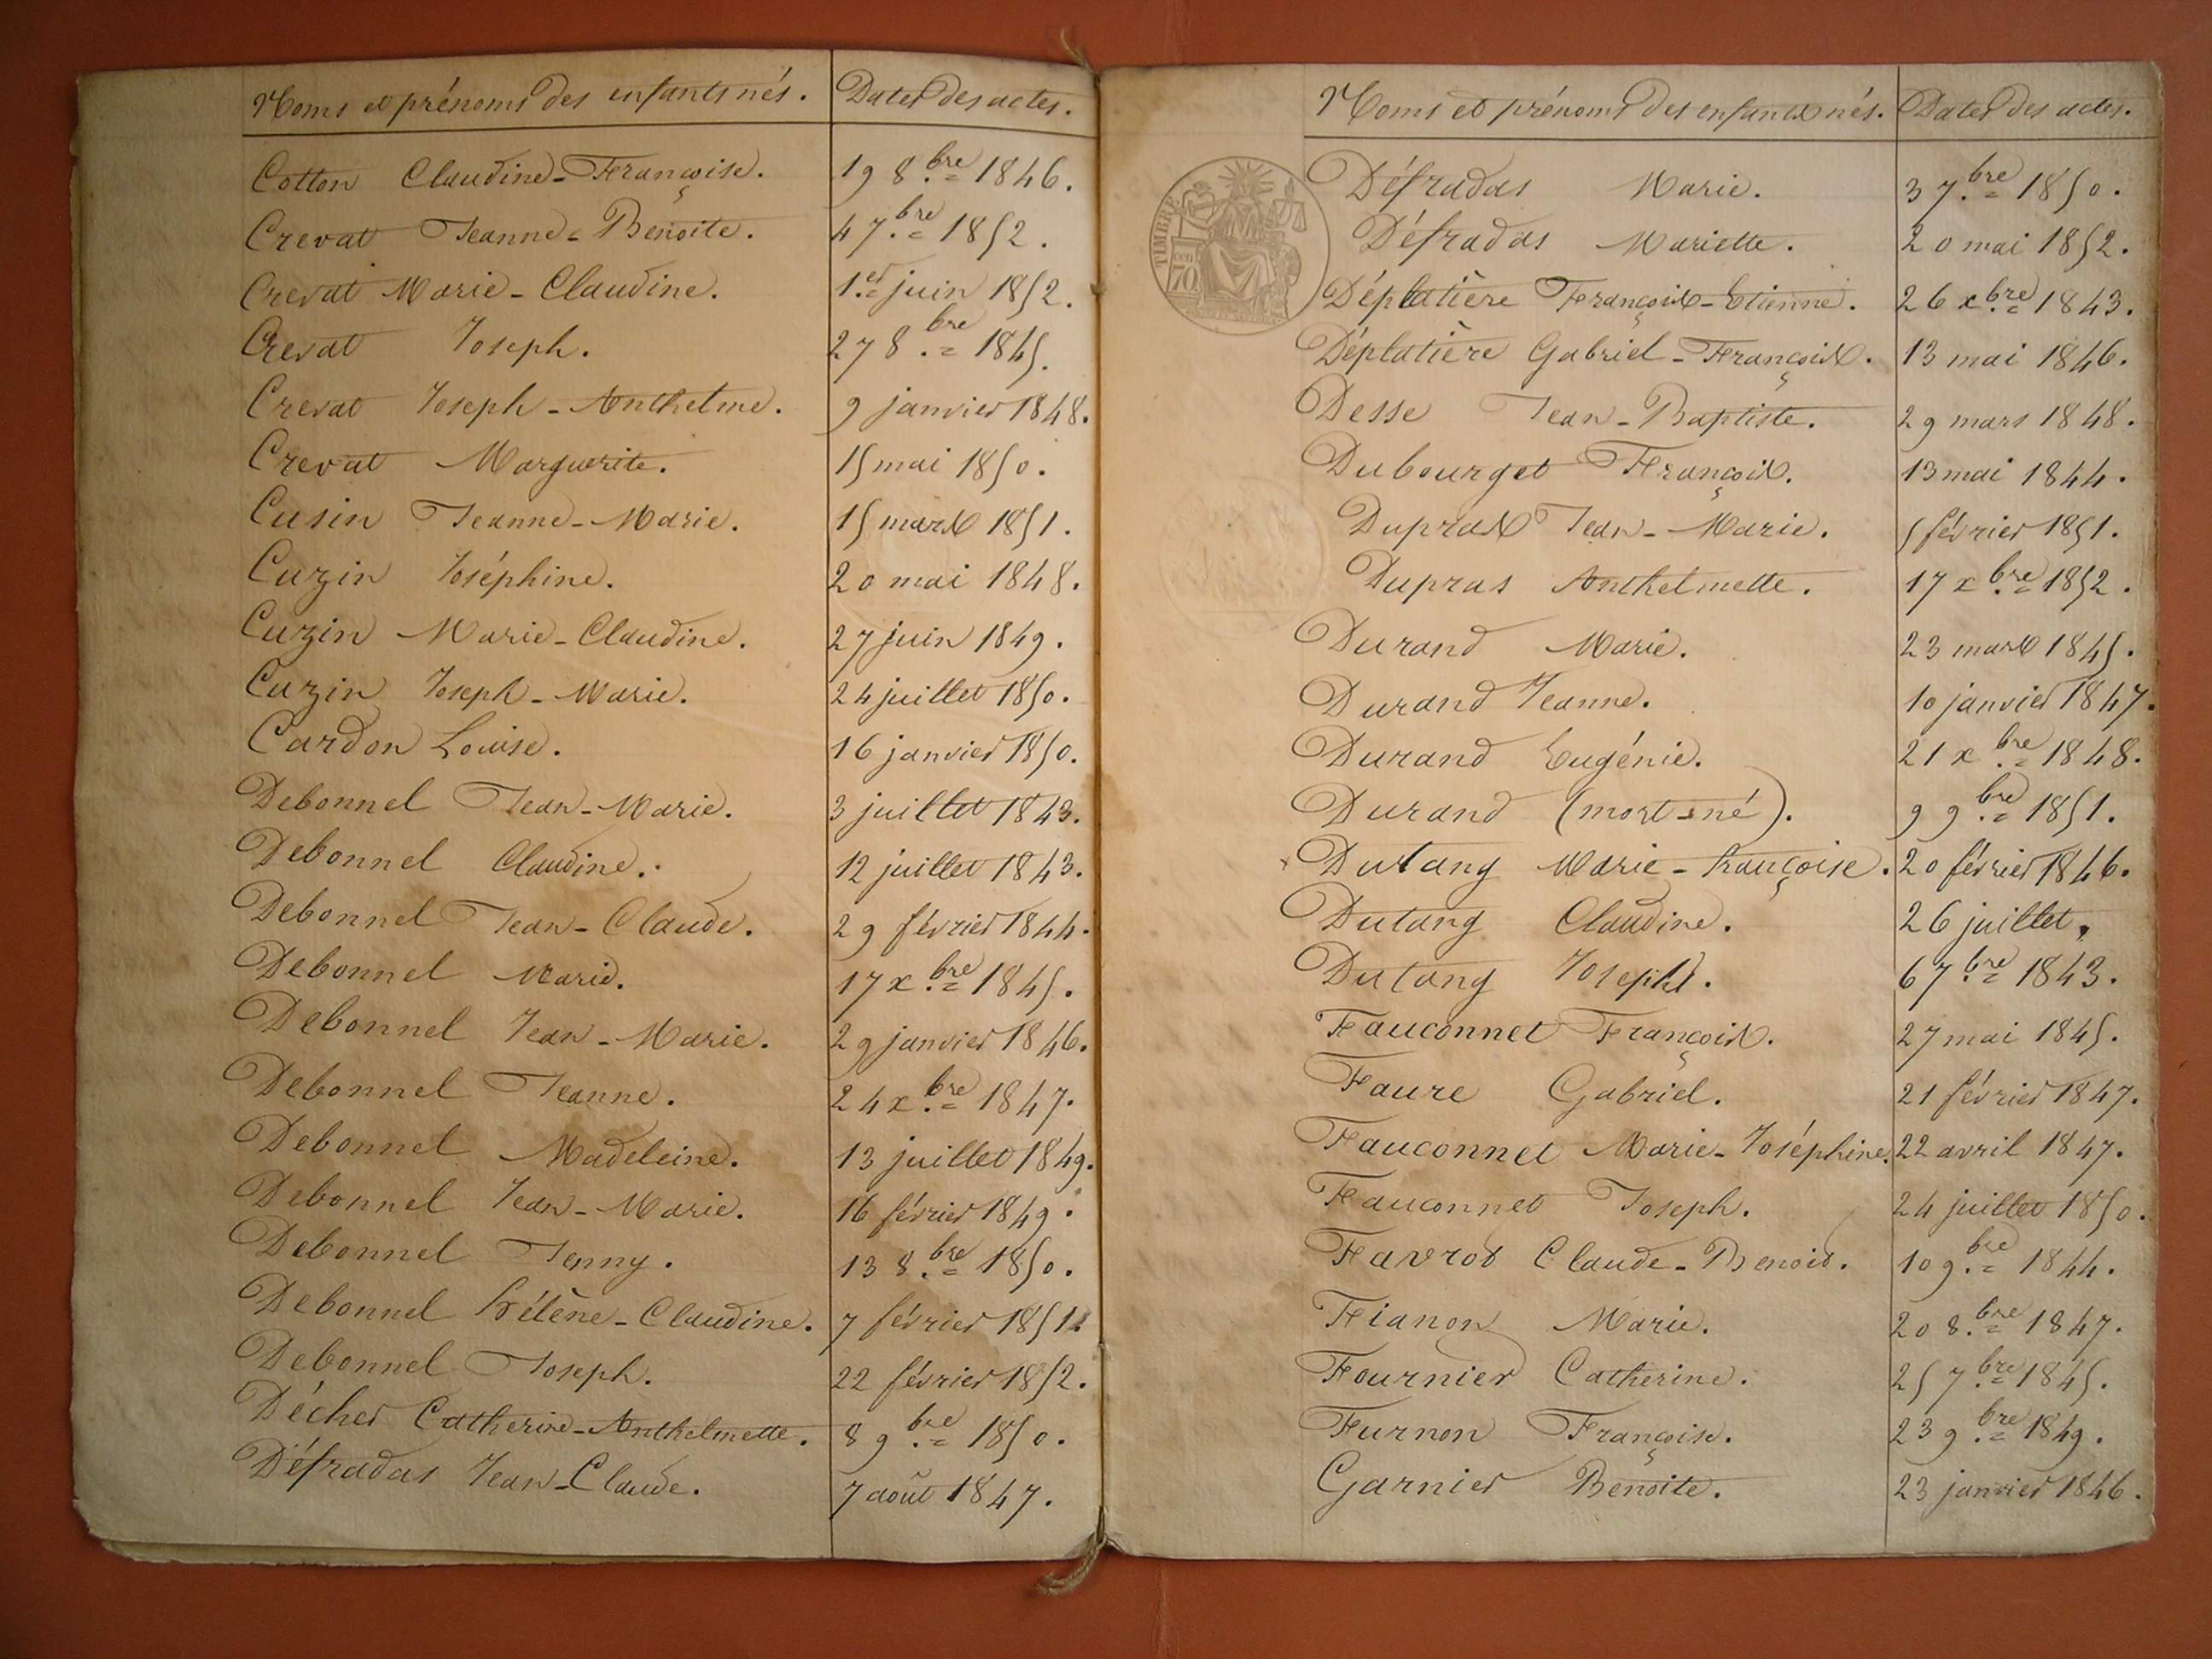 Noms et prénoms des enfants nés. Dates des actes.
Cotton Claudine-Françoise. 19 8.bre 1846.
Crevat Jeanne-Benoite. 4 7.bre 1852.
Crevat Marie-Claudine. 1.er juin 1852.
Crevat Joseph. 27 8.bre 1845.
Crevat Joseph-Anthelme. 9 janvier 1848.
Crevat Marguerite. 15 mai 1850.
Cusin Jeanne-Marie. 15 mars 1851.
Cuzin Joséphine. 20 mai 1848.
Cuzin Marie-Claudine. 27 juin 1849.
Cuzin Joseph-Marie. 24 juillet 1850.
Cardon Louise. 16 janvier 1850.
Debonnel Jean-Marie. 3 juillet 1843.
Debonnel Claudine. 12 juillet 1843.
Debonnel Jean-Claude. 29 février 1844.
Debonnel Marie. 17 x.bre 1845.
Debonnel Jean-Marie. 29 janvier 1846.
Debonnel Jeanne. 24 x.bre 1847.
Debonnel Madeleine. 13 juillet 1849.
Debonnel Jean-Marie. 16 février 1849.
Debonnel Jenny. 13 8.bre 1850.
Debonnel Hélène-Claudine. 7 février 1851.
Debonnel Joseph. 22 février 1852.
Décher Catherine-Anthelmette. 8 9.bre 1850.
Défradas Jean-Claude. 7 août 1847.
Noms et prénoms des enfants nés. Dates des actes.
TIMBRE
70
Défradas Marie. 3 7.bre 1850.
Défradas Mariette. 20 mai 1852.
Déplatière François-Etienne. 26 x.bre 1843.
Déplatière Gabriel-François. 13 mai 1846.
Desse Jean-Baptiste. 29 mars 1848.
Dubourget François. 13 mai 1844.
Dupras Jean-Marie. 5 février 1851.
Dupras Anthelmette. 17 x.bre 1852.
Durand Marie. 23 mars 1845.
Durand Jeanne. 10 janvier 1847.
Durand Eugénie. 21 x.bre 1848.
Durand (mort-né). 9 9.bre 1851.
Dutang Marie-françoise. 20 février 1846.
Dutang Claudine. 26 juillet.
Dutang Joseph. 6 7.bre 1843.
Fauconnet François. 27 mai 1845.
Faure Gabriel. 21 février 1847.
Fauconnet Marie-Joséphine. 22 avril 1847.
Fauconnet Joseph. 24 juillet 1850.
Favrot Claude-Benoit. 10 9.bre 1844.
Fianon Marie. 20 8.bre 1847.
Fournier Catherine. 25 7.bre 1845.
Furnon Françoise. 23 9.bre 1849.
Garnier Benoite. 23 janvier 1846.